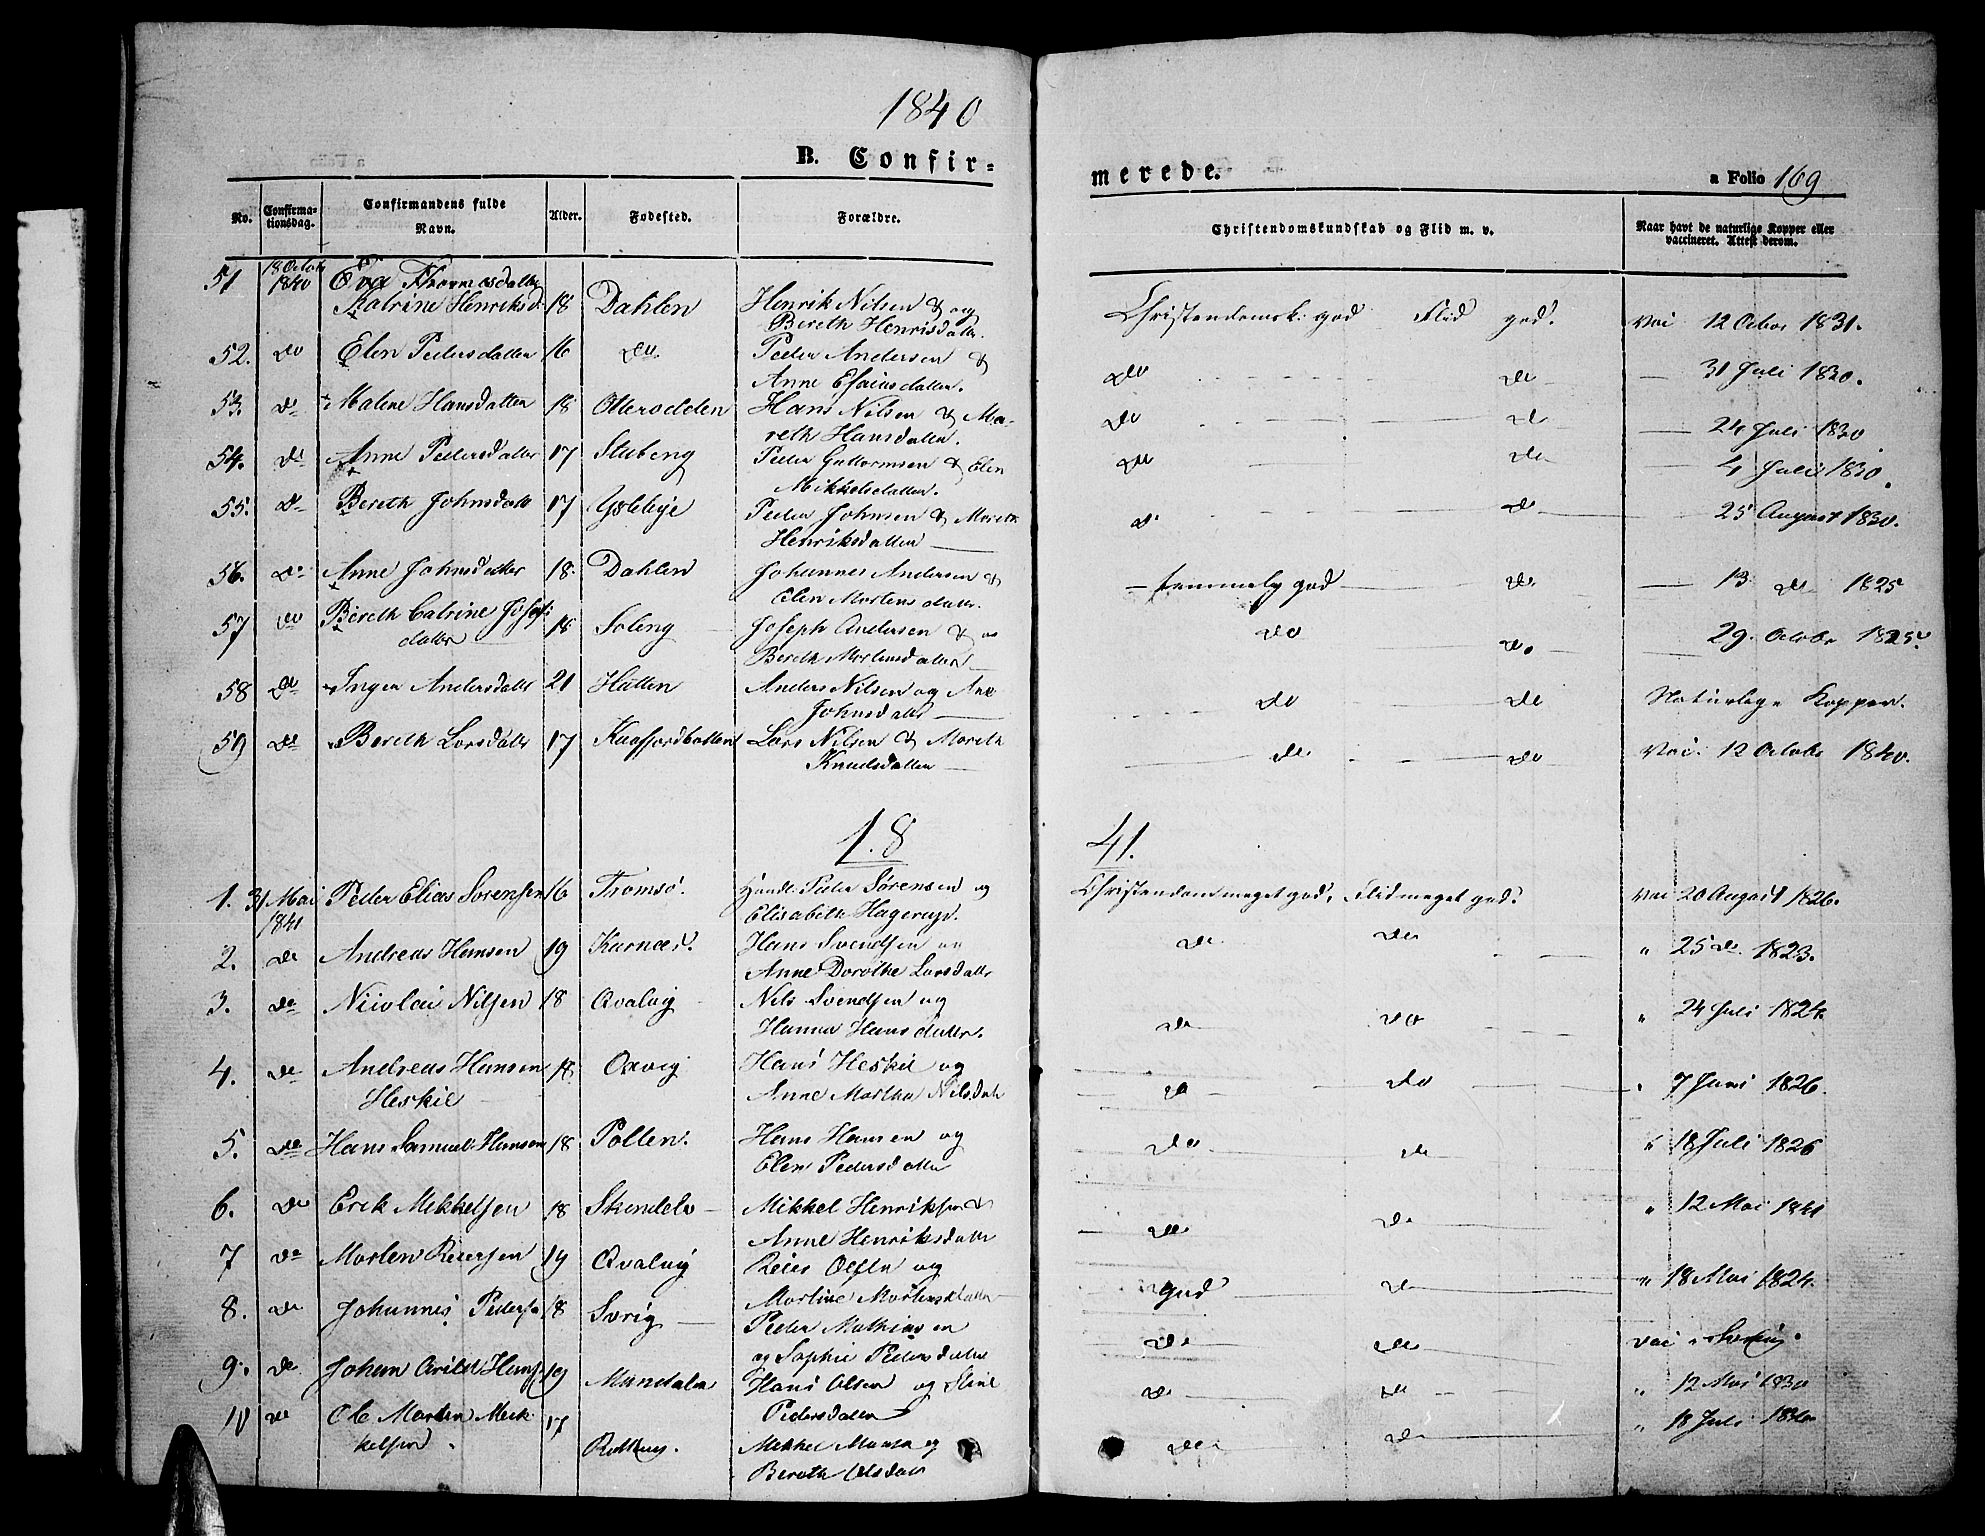 1840
B. Confir=
merede.
a Folio 169
No.
Confirma-
tionsdag.
Confirmandens fulde
Navn.
Alder.
Fødested.
Forældre.
Christendomskundskab og Flid m. v.
Naar havt de naturlige Kopper eller
vaccineret. Attest derom.
51 18 Octob 1840 Eva Thomesdatter
Katrine Henriksd. 18 Dahlen Henrik Nilsen & og
Bereth Henrisdatter. Christendomsk: god Flid god. Vac 12 Octor 1831.
52. do Elen Pedersdatter 16 do. Peder Andersen &
Anne Esaiasdatter. do do 31 Juli 1830.
53. do Malene Hansdatter 18 Otterodden Hans Nilsen & Ma-
reth Hansdatter. do do 24 Juli 1830
54. do Anne Pedersdatter 17 Stubeng Peder Guttormsen & Elen
Mikkelsdatter. do do 4 Juli 1830.
55. do Bereth Johnsdatt 17 Peder Johnsen & Mareth
Henriksdatter do do 25 August 1830.
56. do Anne Johnsdatter 18. Dahlen Johannes Andersen &
Elen Mortensdatter. temmelig god do 13 do 1825
57 do Bereth Catrine Josefs
datter 18 Soleng Joseph Andersen &
Bereth Mortensdatter do do. 29. Octobr 1825.
58 do Inger Andersdatter 21 Hatten Anders Nilsen og Ane
Johnsdatter do do Naturlige Kopper.
59 do Bereth Larsdatter 17 Kaafjordbotten Lars Nilsen & Mareth
Knudsdatter do do Vac. 12 Octobr 1840.
18
41.
1. 31 Mai 1841 Peder Elias Sørensen 16 Tromsø. Handl. Peder Sørensen og
Elisabeth Hagerup. Christendom meget god, Flid meget god. Vac 20 August 1826.
2. do Andreas Hansen 19 Karnæs. Hans Svendsen og
Anne Dorothe Larsdatter do do " 25 do 1823.
3. do Nicolai Nilsen 18 Qvalvig Nils Svendsen og
Hanna Hansdatter. do do " 24 Juli 1824.
4. do Andreas Hansen
Heskie 18 Oxvig Hans Heskie og
Anne Martha Nilsdatt do do " 7 Juni 1826.
5. do Hans Samuel Hansen 18 Pollen. Hans Hansen og
Elen Pedersdatter do do " 18 Juli 1826
6. do Erik Mikkelsen 18 Skendelv Mikkel Henriksen &
Anne Henriksdatter do do " 12 Mai 1841
7 do Morten Reiersen 19 Qvalvig Reier Olsen og
Martine Mortensdatter god do " 18 Mai 1824.
8. do Johannes Peders 18 Svrig Peder Mathiasen
og Sophie Pedersdatter do do Vac
9. do Johan Arild Hans 19 Mandalen Hans Olsen og Stine
Pedersdatter do do " 12 Mai 1830
10 do Ole Morten Mek
kelsen. 17 Mekkel Monsen og
Bereth Olsdatt do do " 18 Juli